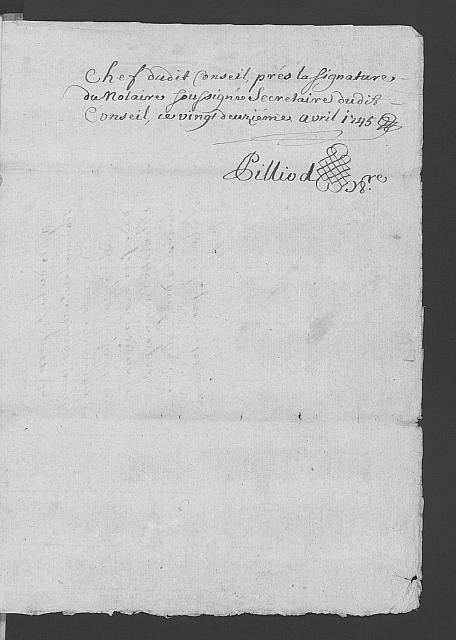 Chef dudit Conseil, prés la Signature
du Notaire soussigné Secretaire dudit
Conseil, ce vingt deuxiéme avril 1745
Pilliod Nre